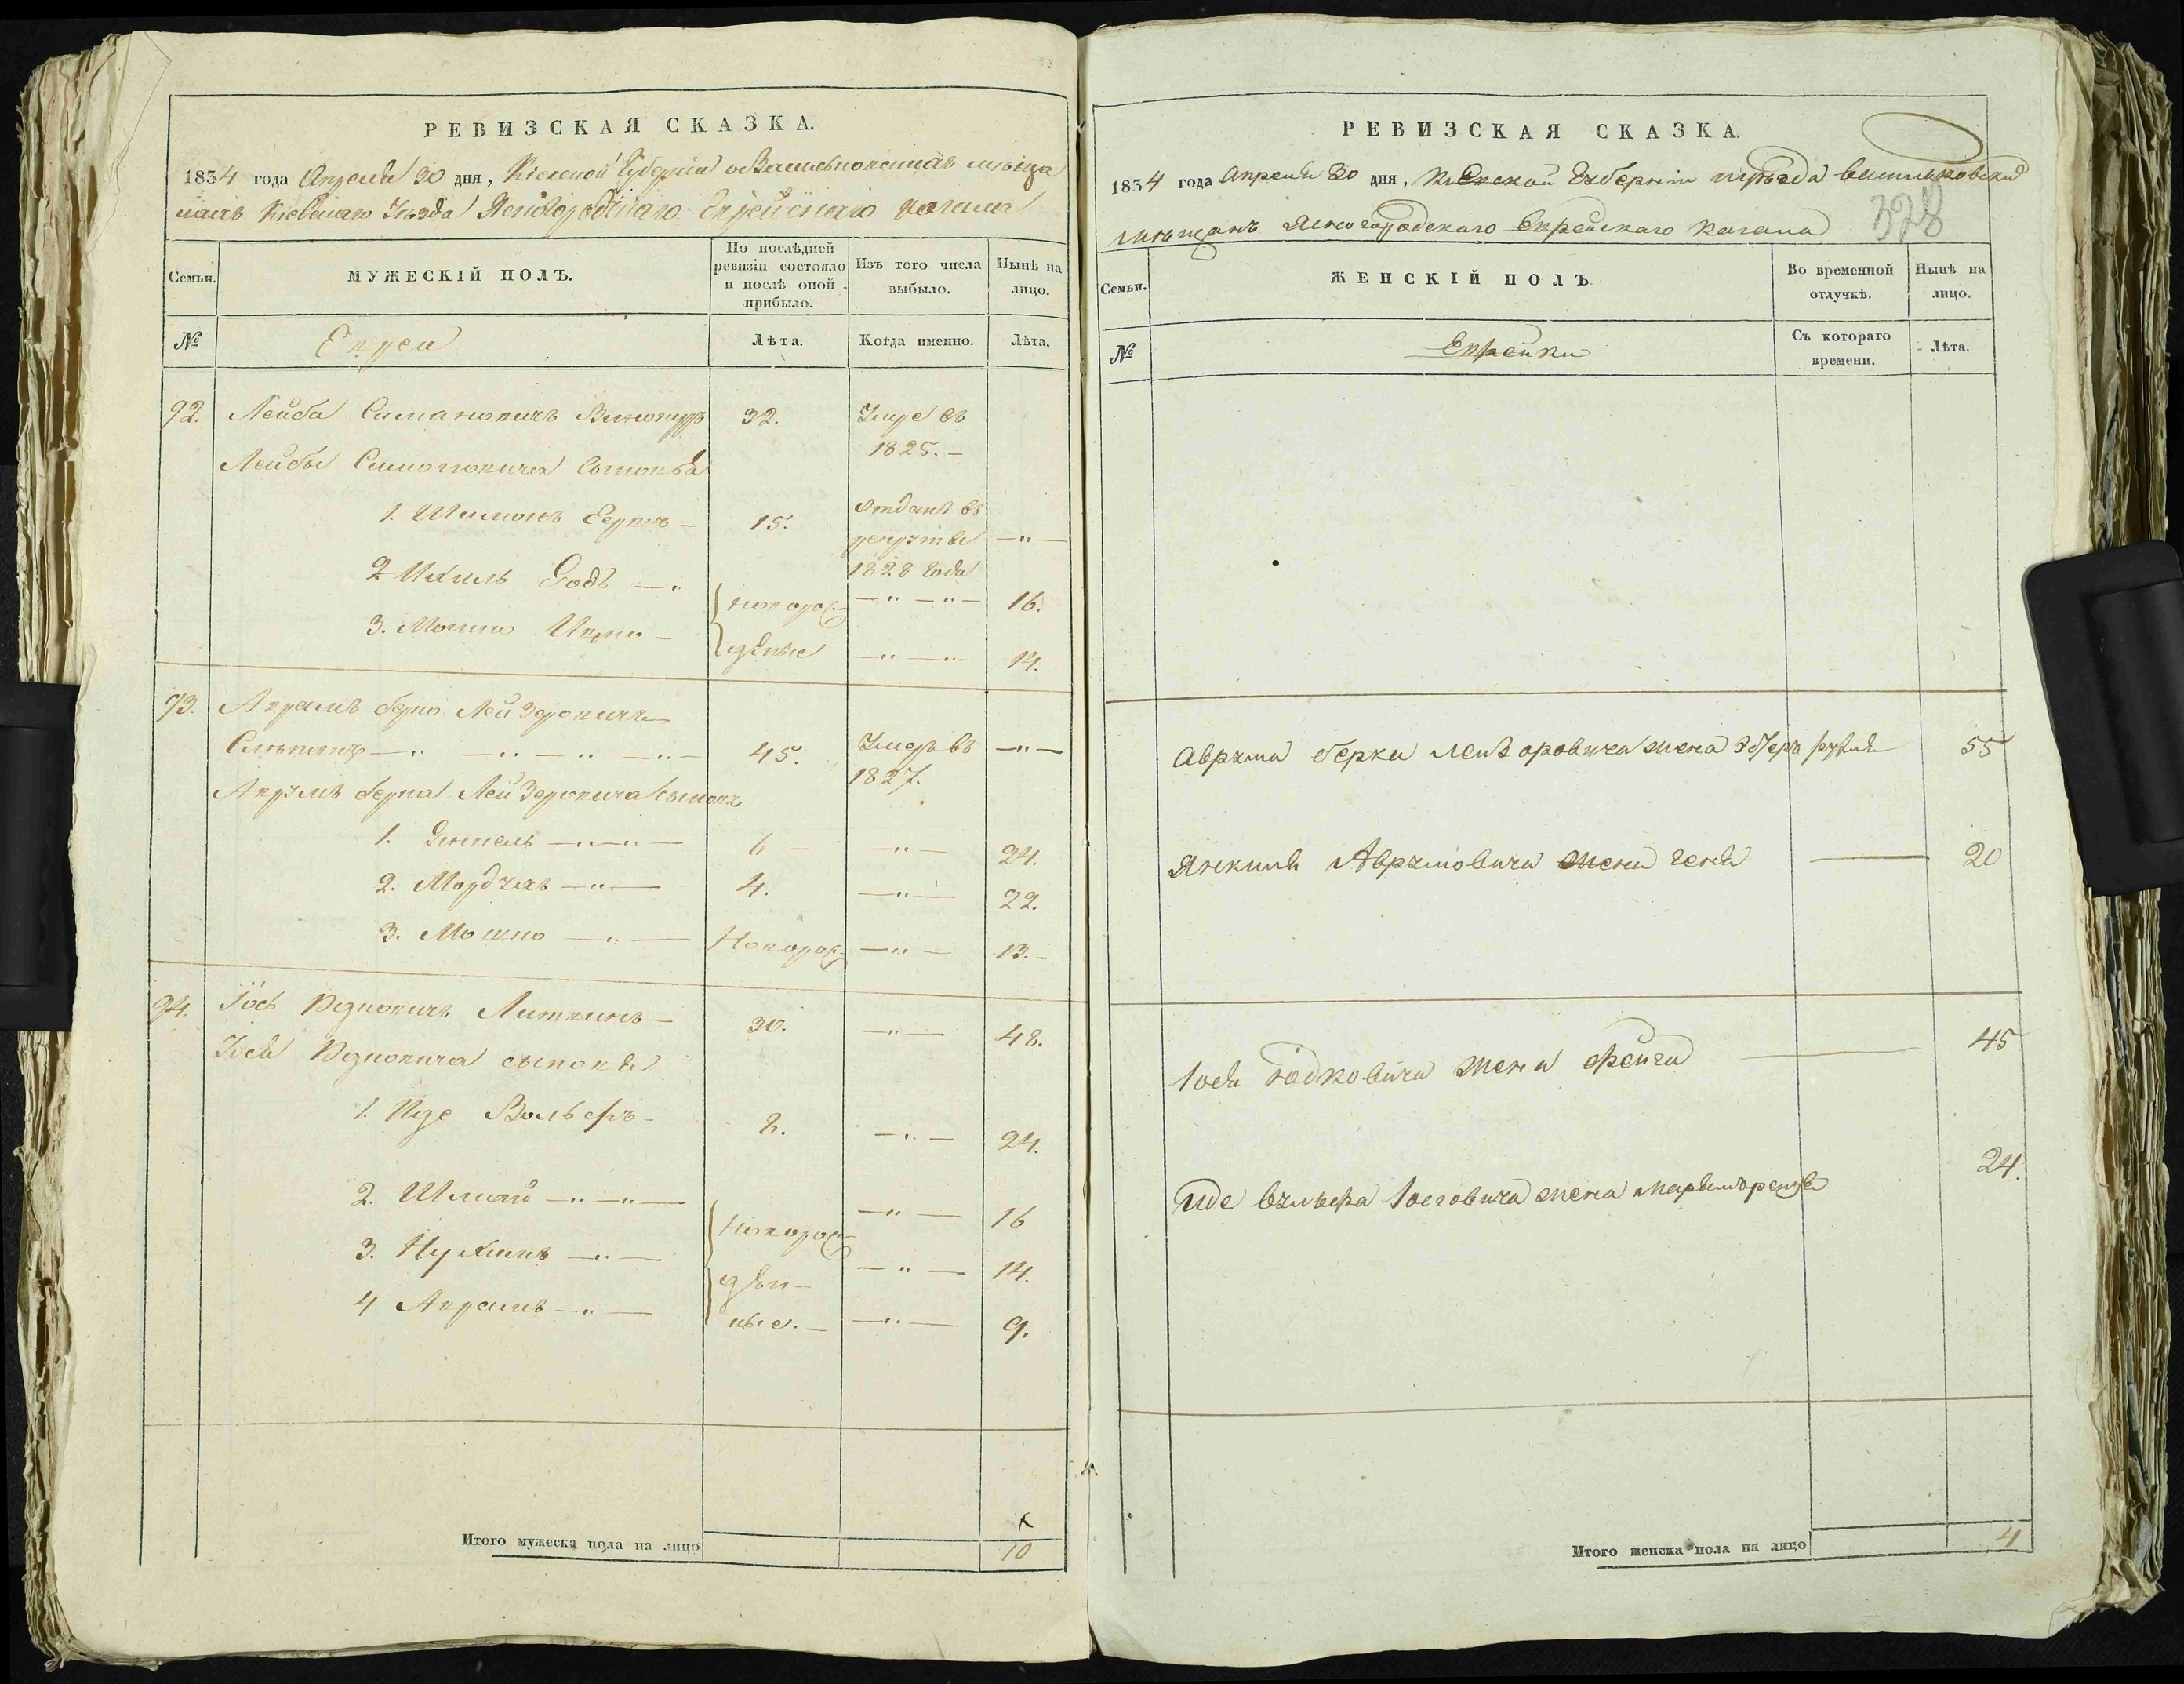 РЕВИЗСКАЯ СКАЗКА.
1834 года Апреля 30 дня, Кіевской Губерніи
Кіевскаго Уѣзда Ясногородскаго Еврейскаго Кагала
Семьи.
МУЖЕСКІЙ ПОЛЪ.
По послѣдней ревизіи состояло и послѣ оной прибыло.
Изъ того числа выбыло.
Нынѣ на лицо.
№
Евреи
Лѣта.
Когда именно.
Лѣта.
92. Лейба Симановичъ 32. Умре въ
1825. —
Лейбы Симоновича Сыновья
1. Шимонъ Берко — 15. Отданъ въ
рекруты — " —
2 Ихиль 1828 Года
новорож — " — " — 16.
3. Мошко —
дѣные — " — " — 14.
93. Аврамъ берко Лейзеровичъ
— " — " — " — " — 45. Умеръ въ — " —
1827.
Аврумъ берка Лейзеровича сыновья
1. Янкель — " — " — 6 — — " — 24.
2. Мордхай — " — 4. — " — 22.
3. Мошко — " — Новорож — " — 13. —
94. Іось Юдковичъ Литвинъ — 30. — " — 48.
Іося Юдковича сыновья
1. Иде Вольфъ — 8. — " — 24.
2. Шмай — " — " — Новорож — " — 16
3. Нухимъ — " — дѣн — — " — 14.
4 Аврамъ — " — ные. — — " — 9.
Итого мужеска пола на лицо 10
РЕВИЗСКАЯ СКАЗКА.
1834 года Апреля 30 дня, Киевской Губернии уѣзда васильковски
мѣщанъ Ясногородскаго Еврейскаго Кагала
328
Семьи.
ЖЕНСКІЙ ПОЛЪ
Во временной отлучкѣ.
Нынѣ на лицо.
№
Еврейки
Съ котораго времени.
Лѣта.
Аврума берка Лейзоровича жена 55
Янкиля Аврумовича жена Геня — 20
Іося Юдковича жена Фейга — 45
Иде вульфа Іосговича жена 24.
Итого женска пола на лицо 4